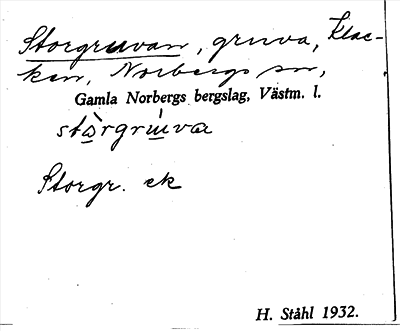 Storgruvan, gruva, Klac-
ken, Norbergs sn,
Gamla Norbergs bergslag, Västm. l.
stòrgrúva
Storgr. ek
H. Ståhl 1932.